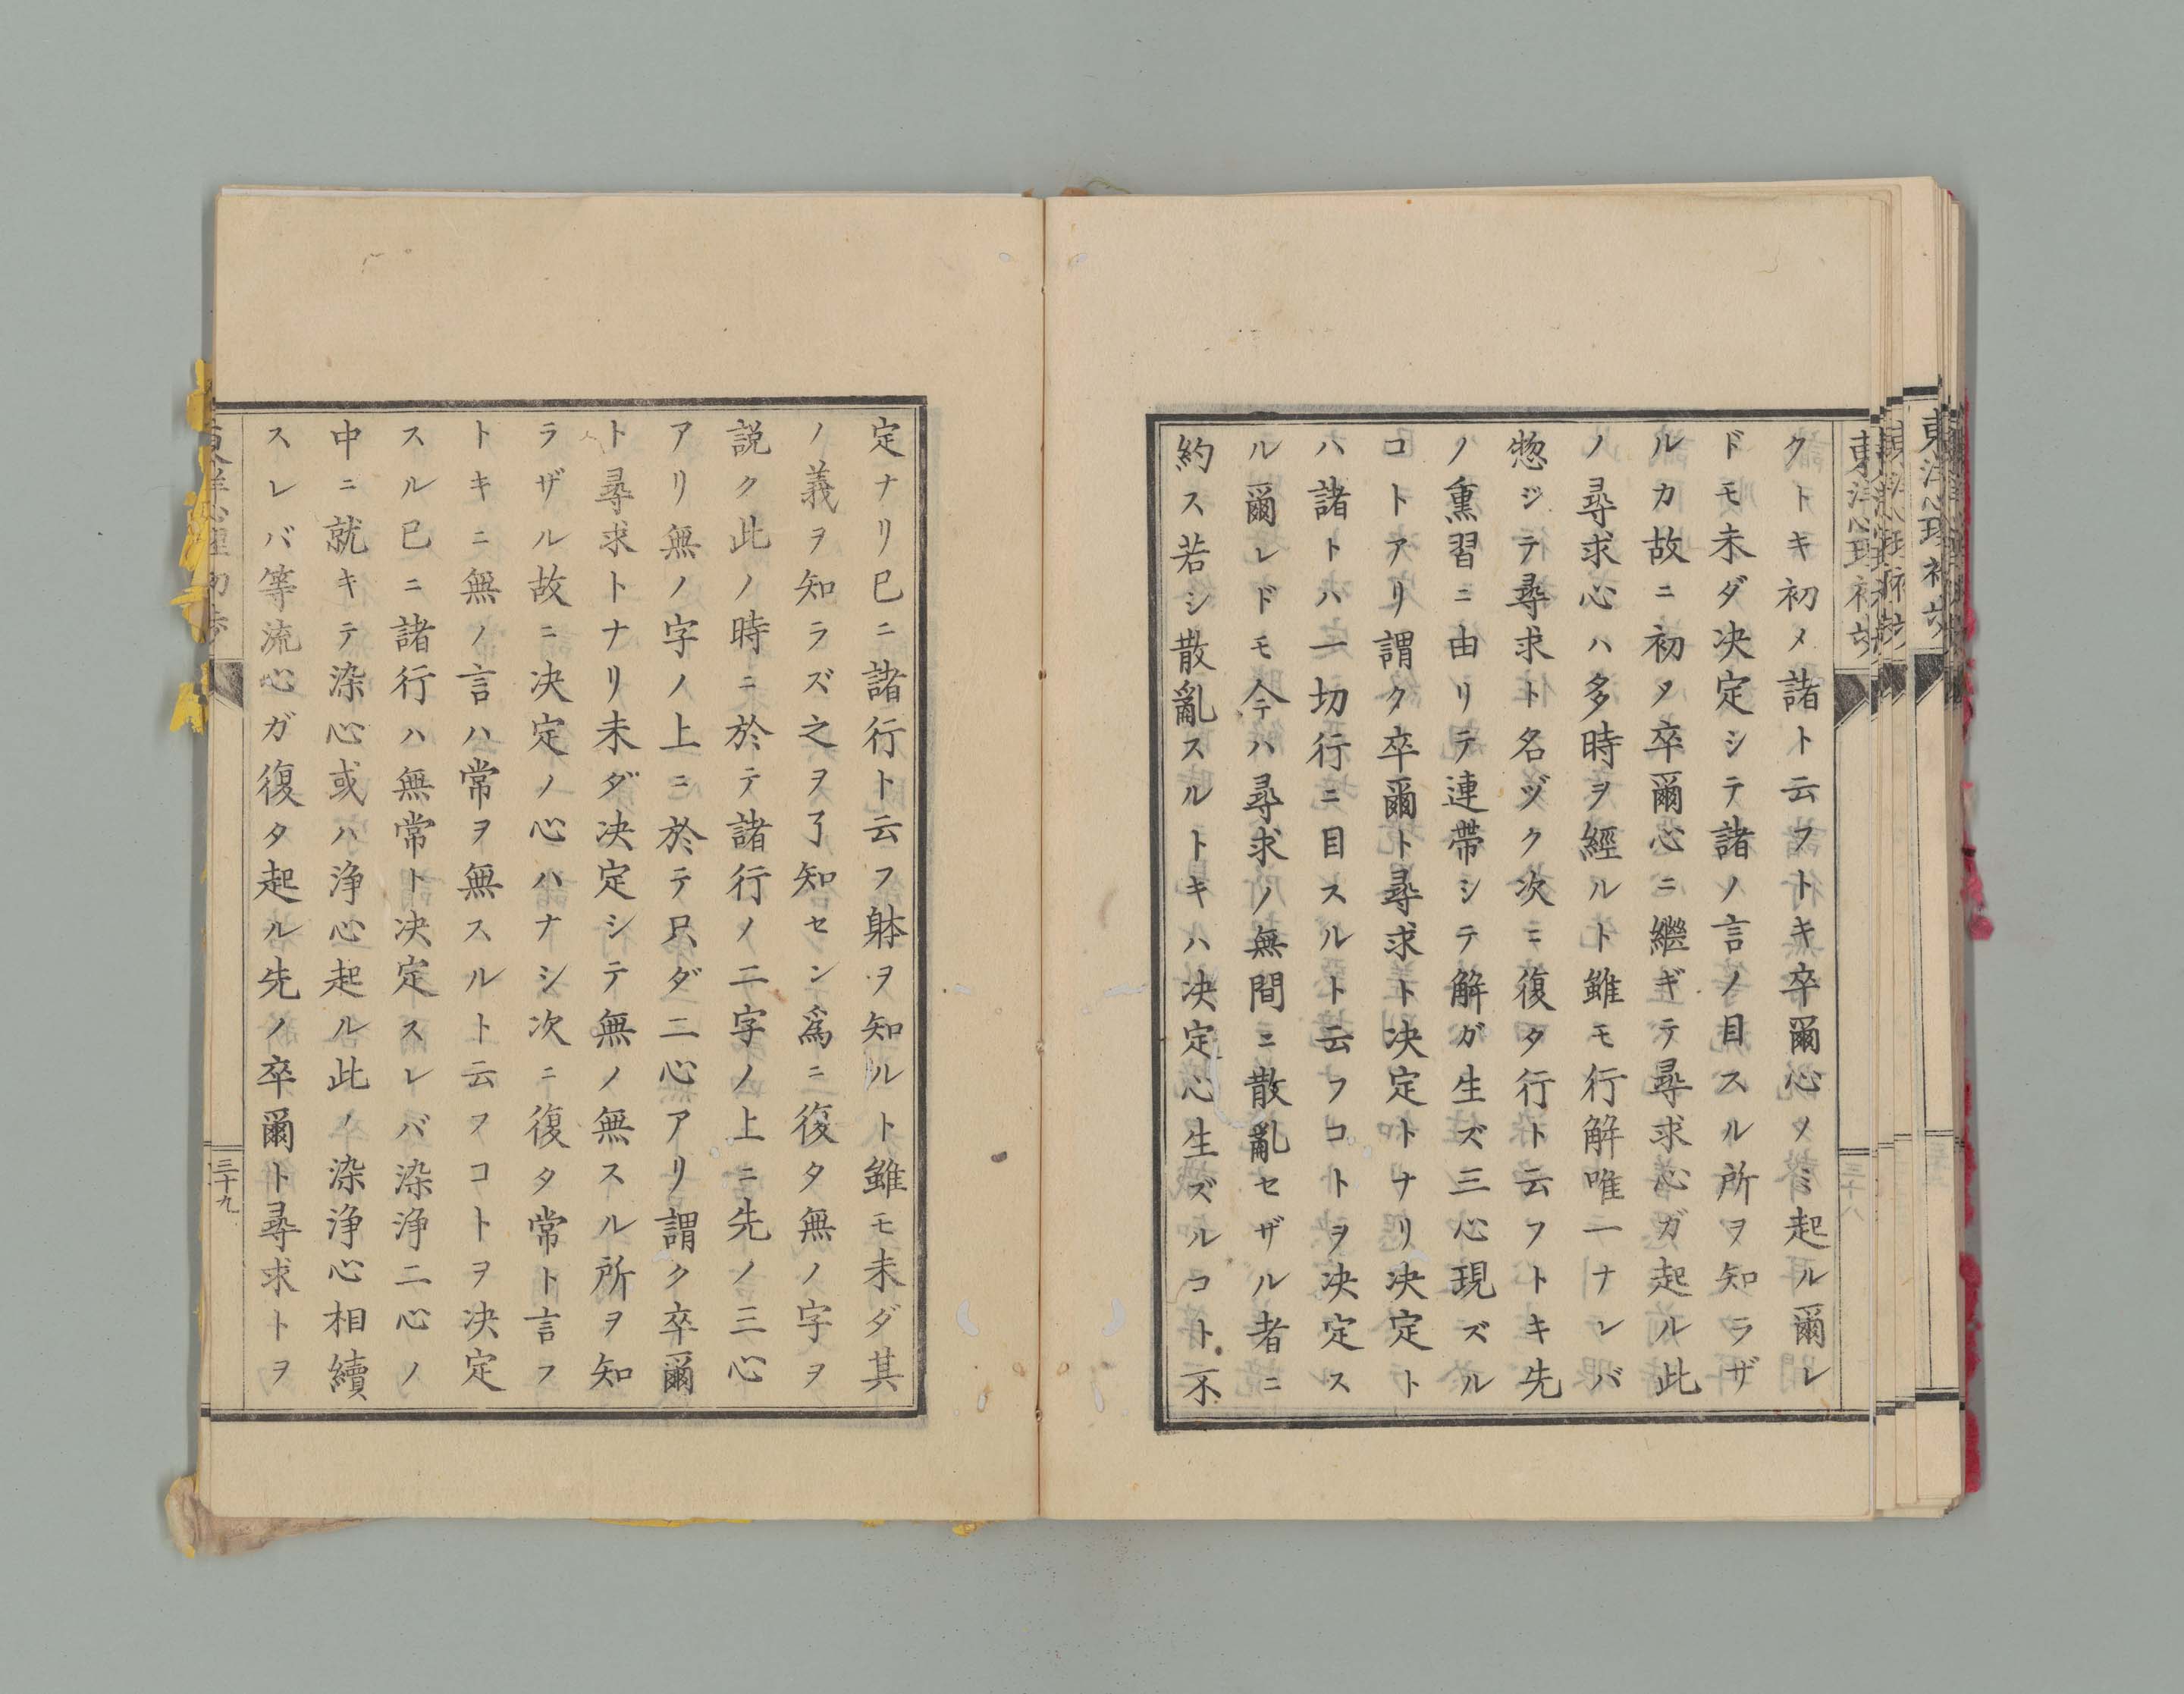 東洋心理初歩
クトキ初メ諸ト云フトキ卒爾心ノミ起ル爾レ
ドモ未ダ决定シテ諸ノ言ノ目スル所ヲ知ラザ
ルカ故ニ初メ卒爾心ニ繼ギテ尋求心ガ起ル此
ノ尋求心ハ多時ヲ經ルト雖モ行解唯一ナレバ
惣ジテ尋求ト名ヅク次ニ復タ行ト云フトキ先
ノ熏習ニ由リテ連帶シテ解ガ生ズ三心現ズル
コトアリ謂ク卒爾ト尋求ト决定トナリ决定ト
ハ諸トハ一切行ニ目スルト云フコトヲ决定ス
ル爾レドモ今ハ尋求ノ無間ニ散亂セザル者ニ
約ス若シ散亂スルトキハ决定心生ズルコト不
定ナリ已ニ諸行ト云フ躰ヲ知ルト雖モ未ダ其
ノ義ヲ知ラズ之ヲ了知セン爲ニ復タ無ノ字ヲ
説ク此ノ時ニ於テ諸行ノ二字ノ上ニ先ノ三心
アリ無ノ字ノ上ニ於テ只ダ二心アリ謂ク卒爾
ト尋求トナリ未ダ决定シテ無ノ無スル所ヲ知
ラザル故ニ决定ノ心ハナシ次ニ復タ常ト言フ
トキニ無ノ言ハ常ヲ無スルト云フコトヲ决定
スル已ニ諸行ハ無常ト决定スレバ染浄二心ノ
中ニ就キテ染心或ハ浄心起ル此ノ染浄心相續
スレバ等流心ガ復タ起ル先ノ卒爾ト尋求トヲ
三十九